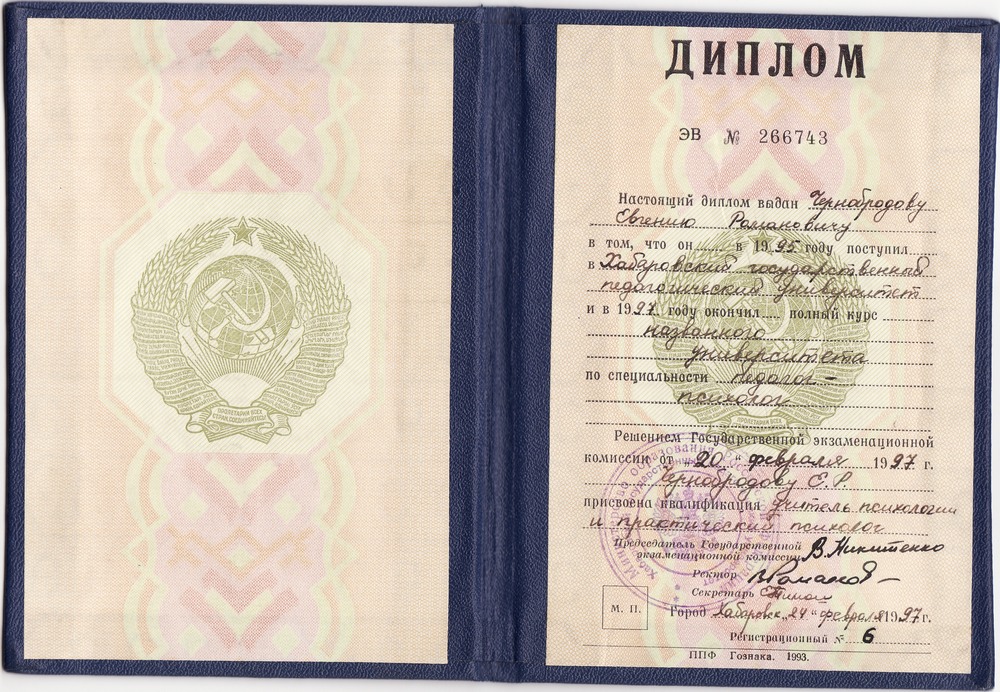 ПРОЛЕТАРИИ ВСЕХ
СТРАН, СОЕДИНЯЙТЕСЬ!
ДИПЛОМ
ЭВ № 266743
Настоящий диплом выдан Чернобродову
Евгению Романовичу
в том, что он в 1995 году поступил
в Хабаровский государственный
педагогический университет
и в 1997 году окончил полный курс
названного
университета
по специальности педагог-
психолог
Решением Государственной экзаменационной
комиссии от „20“ февраля 1997 г.
Чернобродову Е. Р.
присвоена квалификация учитель психологии
и практический психолог
Председатель Государственной
экзаменационной комиссии В. Никитенко
Ректор В Романов
Секретарь
М. П.
Город Хабаровск „24“ февраля 1997 г.
Регистрационный № 6
ППФ Гознака. 1993.